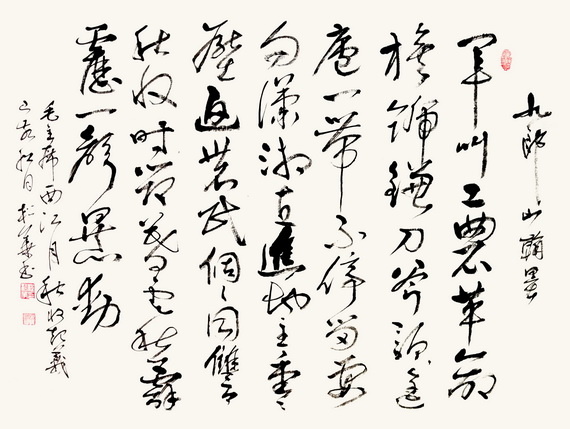 九郎山翰墨
軍叫工農革命
旗號鐮刀斧頭匡
廬一帶不停留要
向瀟湘直進地主重〻
壓迫農民個〻同讐
秋收時節暮雲愁霹
靂一聲暴動
毛主席西江月秋收起義
秋月書